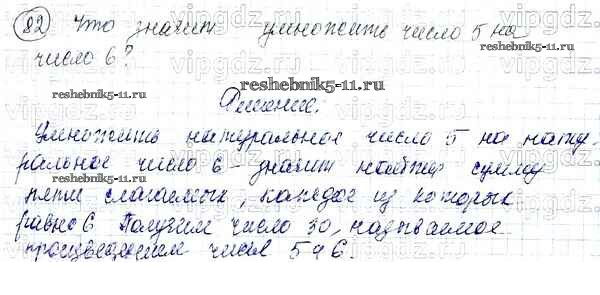 82 Что значит умножить число 5 на
число 6?
reshebnik5-11.ru
Решение.
Умножить натуральное число 5 на нату-
ральное число 6 - значит найти сумму
reshebnik5-11.ru
пяти слагаемых, каждое из которых
равно 6 Получим число 30, называемое
произведением чисел 5 и 6.